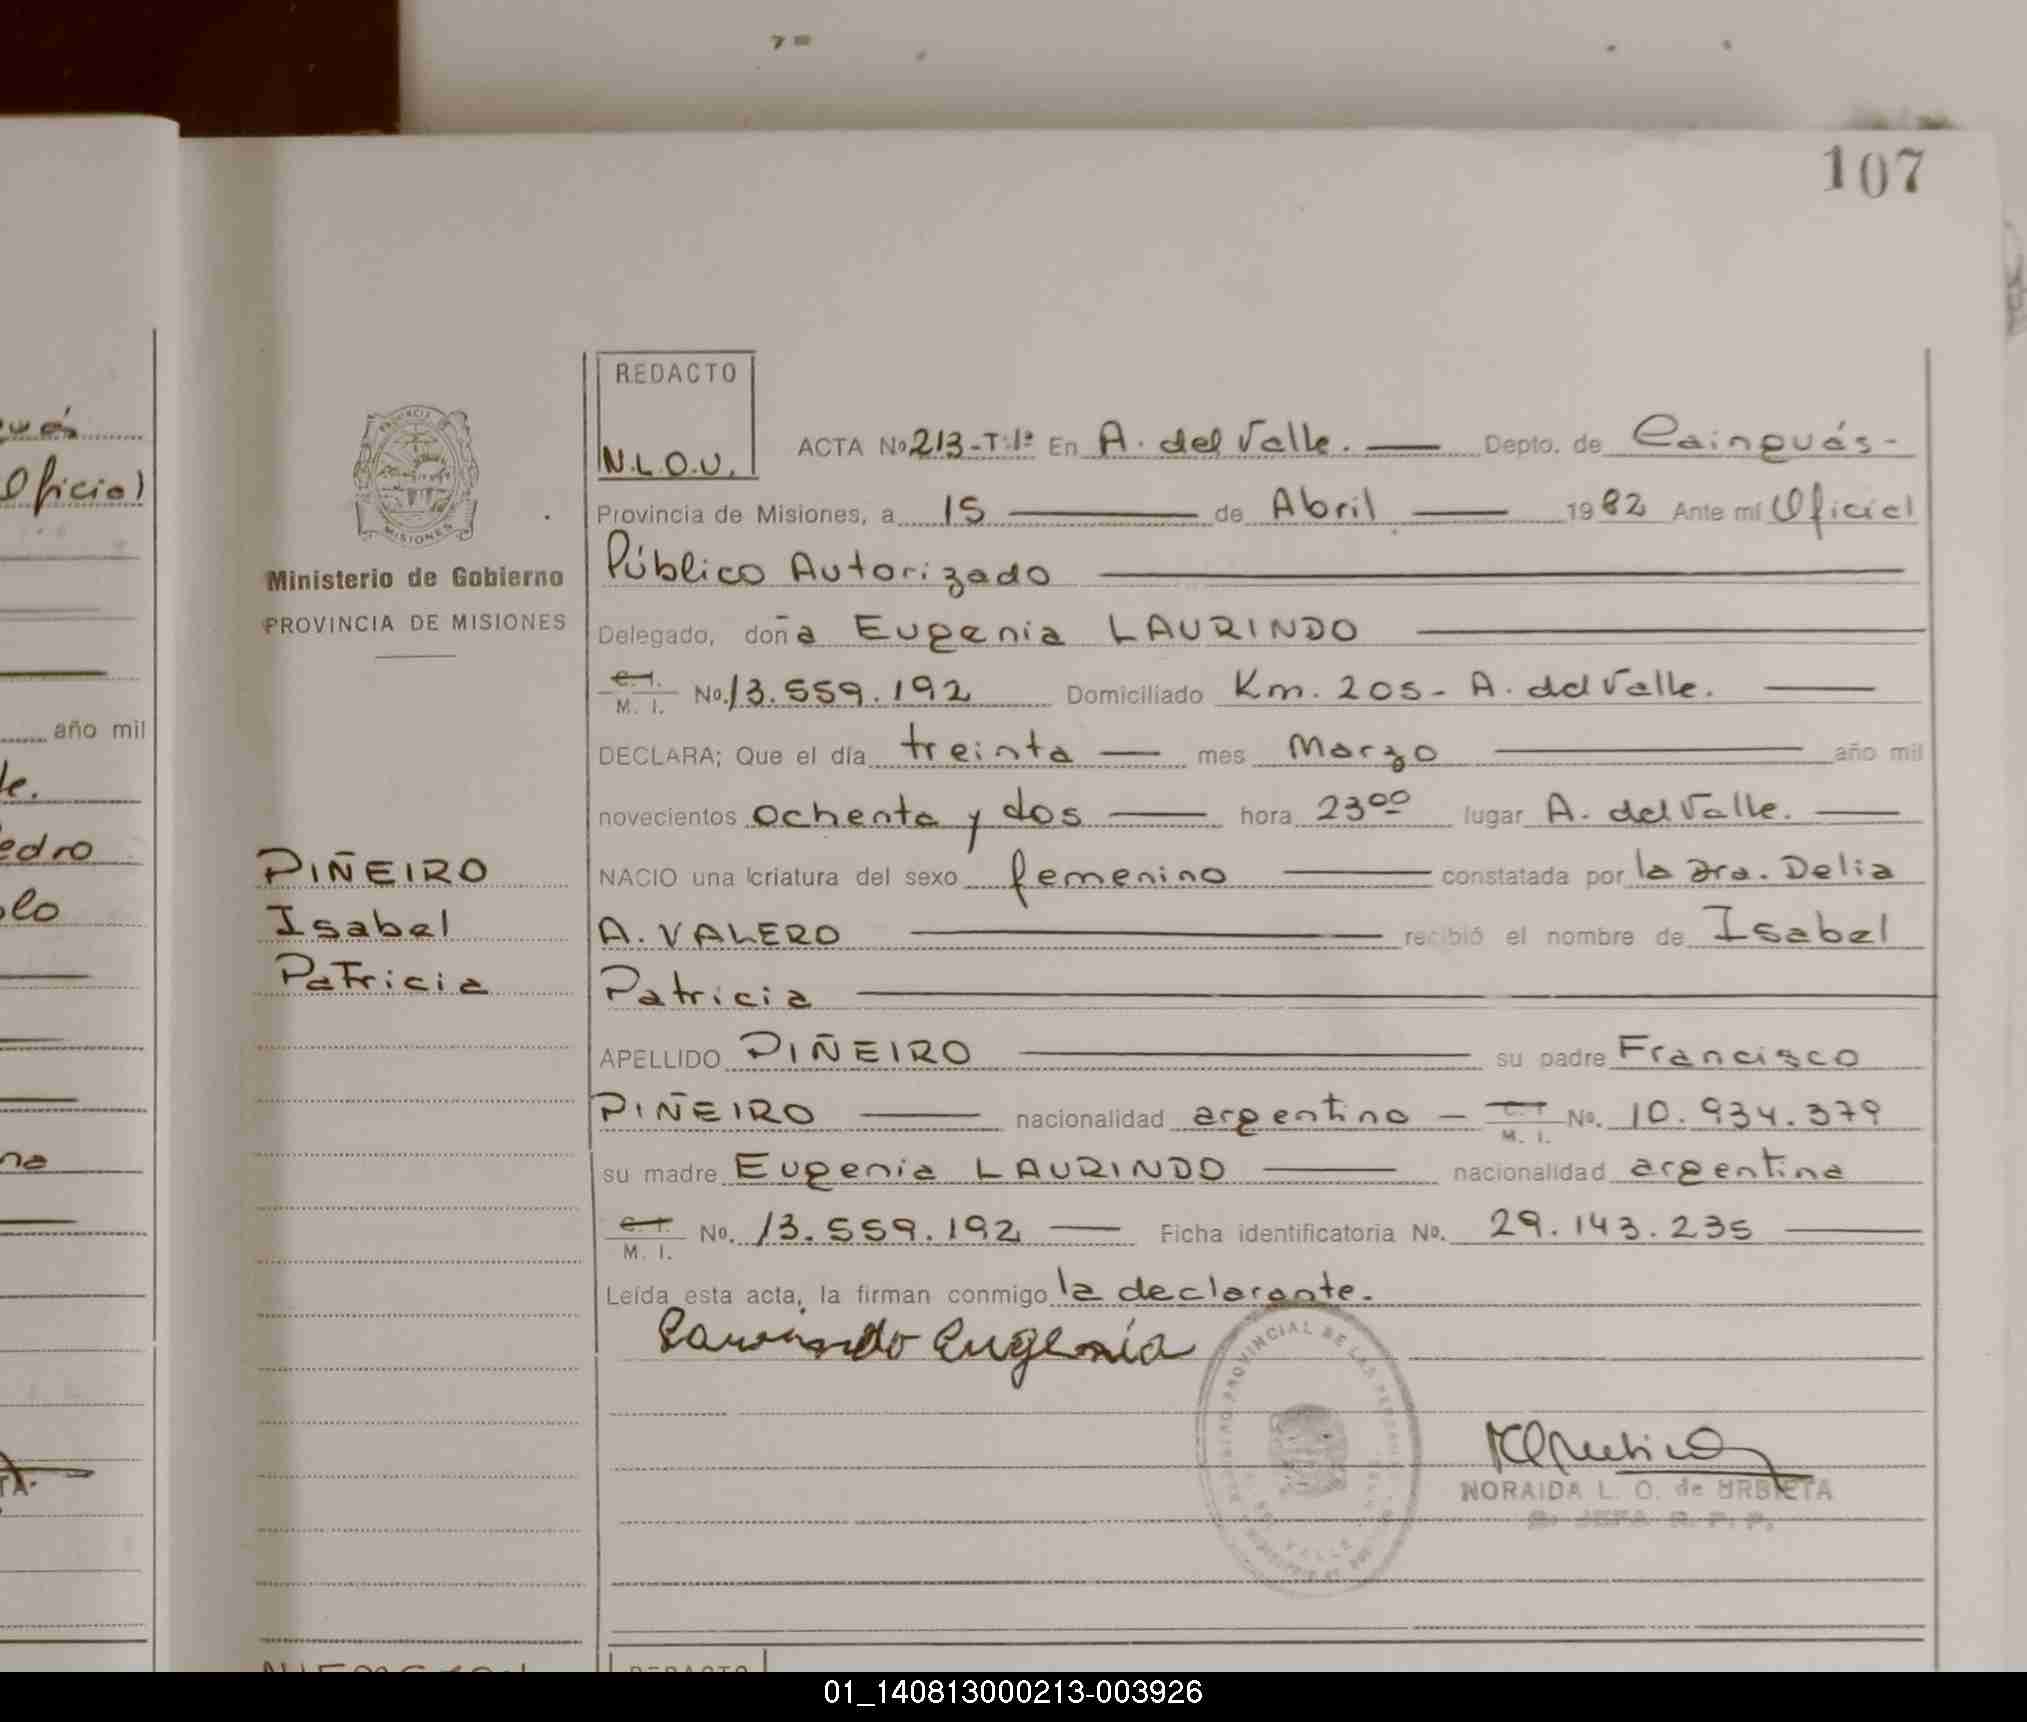 107
ués
Oficial
año mil
le.
edro
olo
na
TA.
PROVINCIA
MISIONES
Ministerio de Gobierno
PROVINCIA DE MISIONES
PIÑEIRO
Isabel
Patricia
REDACTO
N.L.O.U.
ACTA No 213-T:1º En A. del Valle. Depto. de Cainguás-
Provincia de Misiones, a 15 de Abril 1982 Ante mí Oficial
Público Autorizado
Delegado, doña Eugenia LAURINDO
C.I. M. I. No. 13.559.192 Domiciliado Km. 205- A. del Valle.
DECLARA; Que el día treinta mes Marzo año mil
novecientos ochenta y dos hora 23ºº lugar A. del Valle.
NACIO una criatura del sexo femenino constatada por la Dra. Delia
A. VALERO recibió el nombre de Isabel
Patricia
APELLIDO PIÑEIRO su padre Francisco
PIÑEIRO nacionalidad argentino - C. I. M. I. No. 10.934.379
su madre Eugenia LAURINDO nacionalidad argentina
C. I. M. I. No. 13.559.192 Ficha identificatoria No. 29.143.235
Leída esta acta, la firman conmigo la declarante.
Laurindo Eugenia
PROVINCIAL DE LAS PERSONAS
VALLE
NORAIDA L. O. de URBIETA
JEFA R. P. P.
REDACTO
01_140813000213-003926